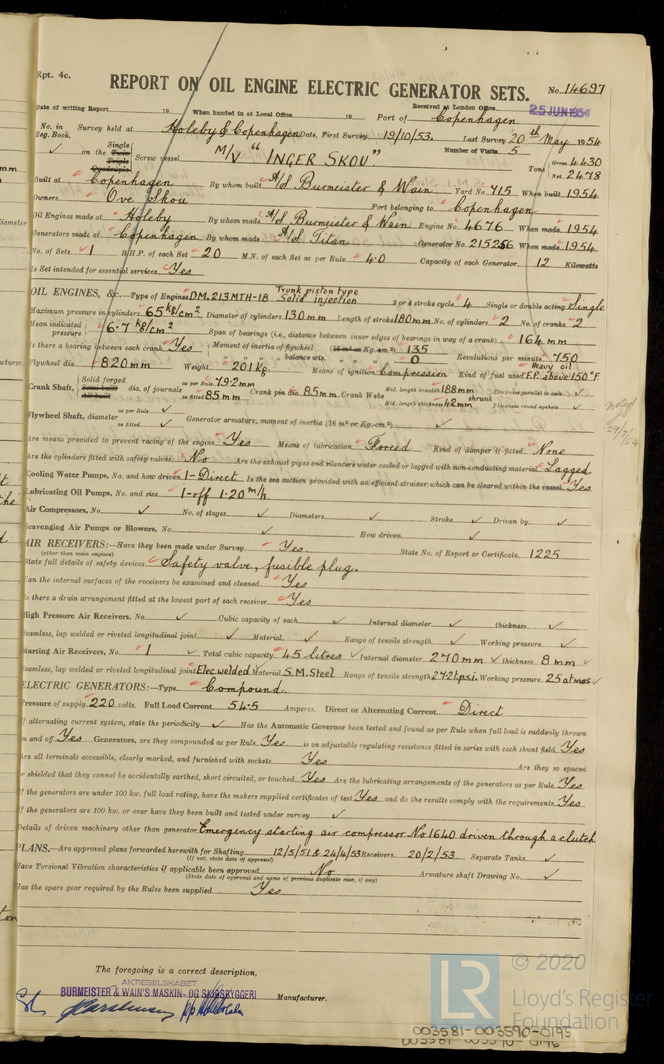 Rpt. 4c.
REPORT ON OIL ENGINE ELECTRIC GENERATOR SETS.
No. 14697
25 JUN 1954
Date of writing Report 19 When handed in at Local Office 19 Received at London Office
Port of Copenhagen
No. in Reg. Book. Survey held at Holeby & Copenhagen Date, First Survey 19/10/53. Last Survey 20th May 1954
Number of Visits 5
✓ on the Single Twin Triple Quadruple Screw vessel M/V "INGER SKOU" Tons Gross 4430 Net 2478
Built at Copenhagen By whom built A/S Burmeister & Wain Yard No. 715 When built 1954
Owners Ove Skou Port belonging to Copenhagen
Oil Engines made at Holeby By whom made A/S Burmeister & Wain Engine No. 4676 When made 1954
Generators made at Copenhagen By whom made A/S Titan Generator No. 215256 When made 1954
No. of Sets 1 B.H.P. of each Set 20 M.N. of each Set as per Rule 4.0 Capacity of each Generator 12 Kilowatts
Is Set intended for essential services Yes
OIL ENGINES, &c.—Type of Engines DM.213MTH-18 Trunk piston type Solid injection 2 or 4 stroke cycle 4 Single or double acting Single
Maximum pressure in cylinders 65 kg/cm² Diameter of cylinders 130mm Length of stroke 180mm No. of cylinders 2 No. of cranks 2
Mean indicated pressure 6.7 kg/cm² Span of bearings (i.e., distance between inner edges of bearings in way of a crank) 164 mm
Is there a bearing between each crank Yes Moment of inertia of flywheel (16 m² or Kg.-cm².) 135 Revolutions per minute 750
" " " balance wts. " " 0
Flywheel dia 820mm Weight 201kg. Means of ignition Compression Kind of fuel used Heavy oil F.P. above 150°F
Crank Shaft, Solid forged Semi built All built dia. of journals as per Rule 79.2mm as fitted 85mm Crank pin dia 85mm Crank Webs Mid. length breadth 188mm Mid. length thickness 42mm shrunk Thickness parallel to axis ✓ Thickness round eyehole ✓
Flywheel Shaft, diameter as per Rule ✓ as fitted ✓ Generator armature, moment of inertia (16 m² or Kg.-cm.²) ✓
Are means provided to prevent racing of the engine Yes Means of lubrication Forced Kind of damper if fitted None
Are the cylinders fitted with safety valves No Are the exhaust pipes and silencers water cooled or lagged with non-conducting material Lagged
Cooling Water Pumps, No. and how driven 1-Direct Is the sea suction provided with an efficient strainer which can be cleared within the vessel Yes
Lubricating Oil Pumps, No. and size 1-off 1.20 m³/h
Air Compressors, No. ✓ No. of stages ✓ Diameters ✓ Stroke ✓ Driven by ✓
Scavenging Air Pumps or Blowers, No. ✓ How driven ✓
AIR RECEIVERS:—Have they been made under Survey Yes State No. of Report or Certificate 1225
(other than main engines)
State full details of safety devices Safety valve, fusible plug.
Can the internal surfaces of the receivers be examined and cleaned Yes
Is there a drain arrangement fitted at the lowest part of each receiver Yes
High Pressure Air Receivers, No. ✓ Cubic capacity of each ✓ Internal diameter ✓ thickness ✓
Seamless, lap welded or riveted longitudinal joint ✓ Material ✓ Range of tensile strength ✓ Working pressure ✓
Starting Air Receivers, No. 1 ✓ Total cubic capacity 45 litres ✓ Internal diameter 270mm ✓ thickness 8mm ✓
Seamless, lap welded or riveted longitudinal joint Elec. welded Material S.M. Steel Range of tensile strength 27.2 t.p.si. Working pressure 25 atmos ✓
ELECTRIC GENERATORS:—Type Compound.
Pressure of supply 220 volts. Full Load Current 54.5 Amperes. Direct or Alternating Current Direct
If alternating current system, state the periodicity ✓ Has the Automatic Governor been tested and found as per Rule when full load is suddenly thrown
on and off Yes Generators, are they compounded as per Rule Yes is an adjustable regulating resistance fitted in series with each shunt field Yes
Are all terminals accessible, clearly marked, and furnished with sockets Yes Are they so spaced
or shielded that they cannot be accidentally earthed, short circuited, or touched Yes Are the lubricating arrangements of the generators as per Rule Yes
If the generators are under 100 kw. full load rating, have the makers supplied certificates of test Yes and do the results comply with the requirements Yes
If the generators are 100 kw. or over have they been built and tested under survey ✓
Details of driven machinery other than generator Emergency starting air compressor No 1640 driven through a clutch
PLANS.—Are approved plans forwarded herewith for Shafting 12/5/51 & 24/4/53 Receivers 20/2/53 Separate Tanks ✓
(If not, state date of approval)
Have Torsional Vibration characteristics if applicable been approved No Armature shaft Drawing No. ✓
(State date of approval and name of previous duplicate case, if any)
Has the spare gear required by the Rules been supplied Yes
The foregoing is a correct description,
AKTIESELSKABET
BURMEISTER & WAIN'S MASKIN- OG SKIBSBYGGERI Manufacturer.
LR © 2020
Lloyd's Register
Foundation
003581-003590-0195
003581-003590-0196